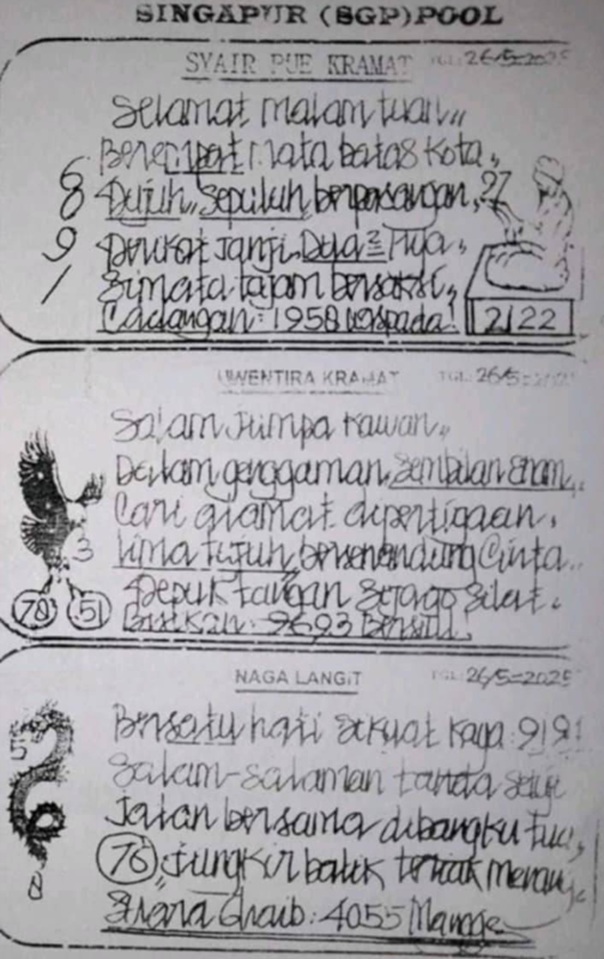 SINGAPUR (SGP)POOL
SYAIR PUE KRAMAT TGL: 26/5=2025
Selamat malam tuan,,
Berempat mata batas kota,
6
8 Tujuh,, Sepuluh berpasangan, 27
9 janji Dua=2
1 Simata tajam bersaksi,
Cadangan: 1958 waspada! 2122
UWENTIRA KRAMAT TGL: 26/5=2025
Salam Jumpa Kawan,,
Dalam genggaman, Sembilan enam,,
Cari alamat dipertigaan,
3 Lima tujuh, bersenandung Cinta..
Tepuk tangan Sijago Silat.
78 51 9693
NAGA LANGIT TGL: 26/5=2025
Bersatu hati Sekuat Raga 9191
5 Salam-salaman tanda
Jalan bersama dibangku tua,
76 Jungkir balik
8 Suara Ghaib: 4055